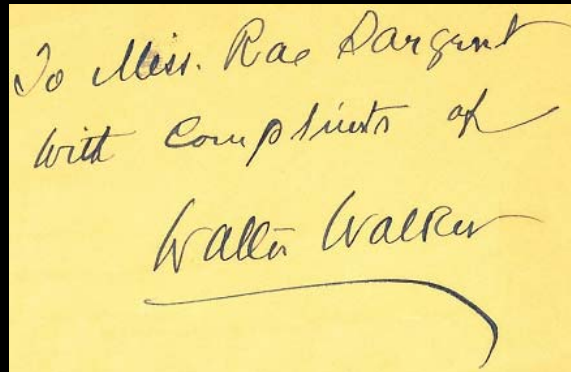 To Miss. Rae Sargent
With Compliments of
Walter Walker